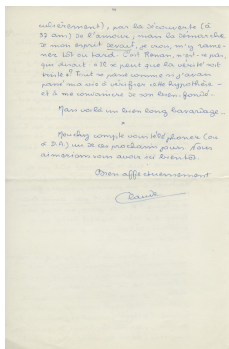 sincèrement), par la découverte (à
37 ans) de l'amour, mais la démarche
de mon esprit devait, je crois, m'y rame-
ner tôt ou tard. C'est Renan, n'est-ce pas
qui disait : « Il se peut que la vérité soit
triste » ? Tout se passe comme si j'avais
passé ma vie à vérifier cette hypothèse -
et à me convaincre de son bien-fondé.
Mais voilà un bien long bavardage...
Mouchy compte vous téléphoner (ou
à D.A.) un de ces prochains jours. Nous
aimerions vous avoir ici bientôt.
Bien affectueusement
Claude